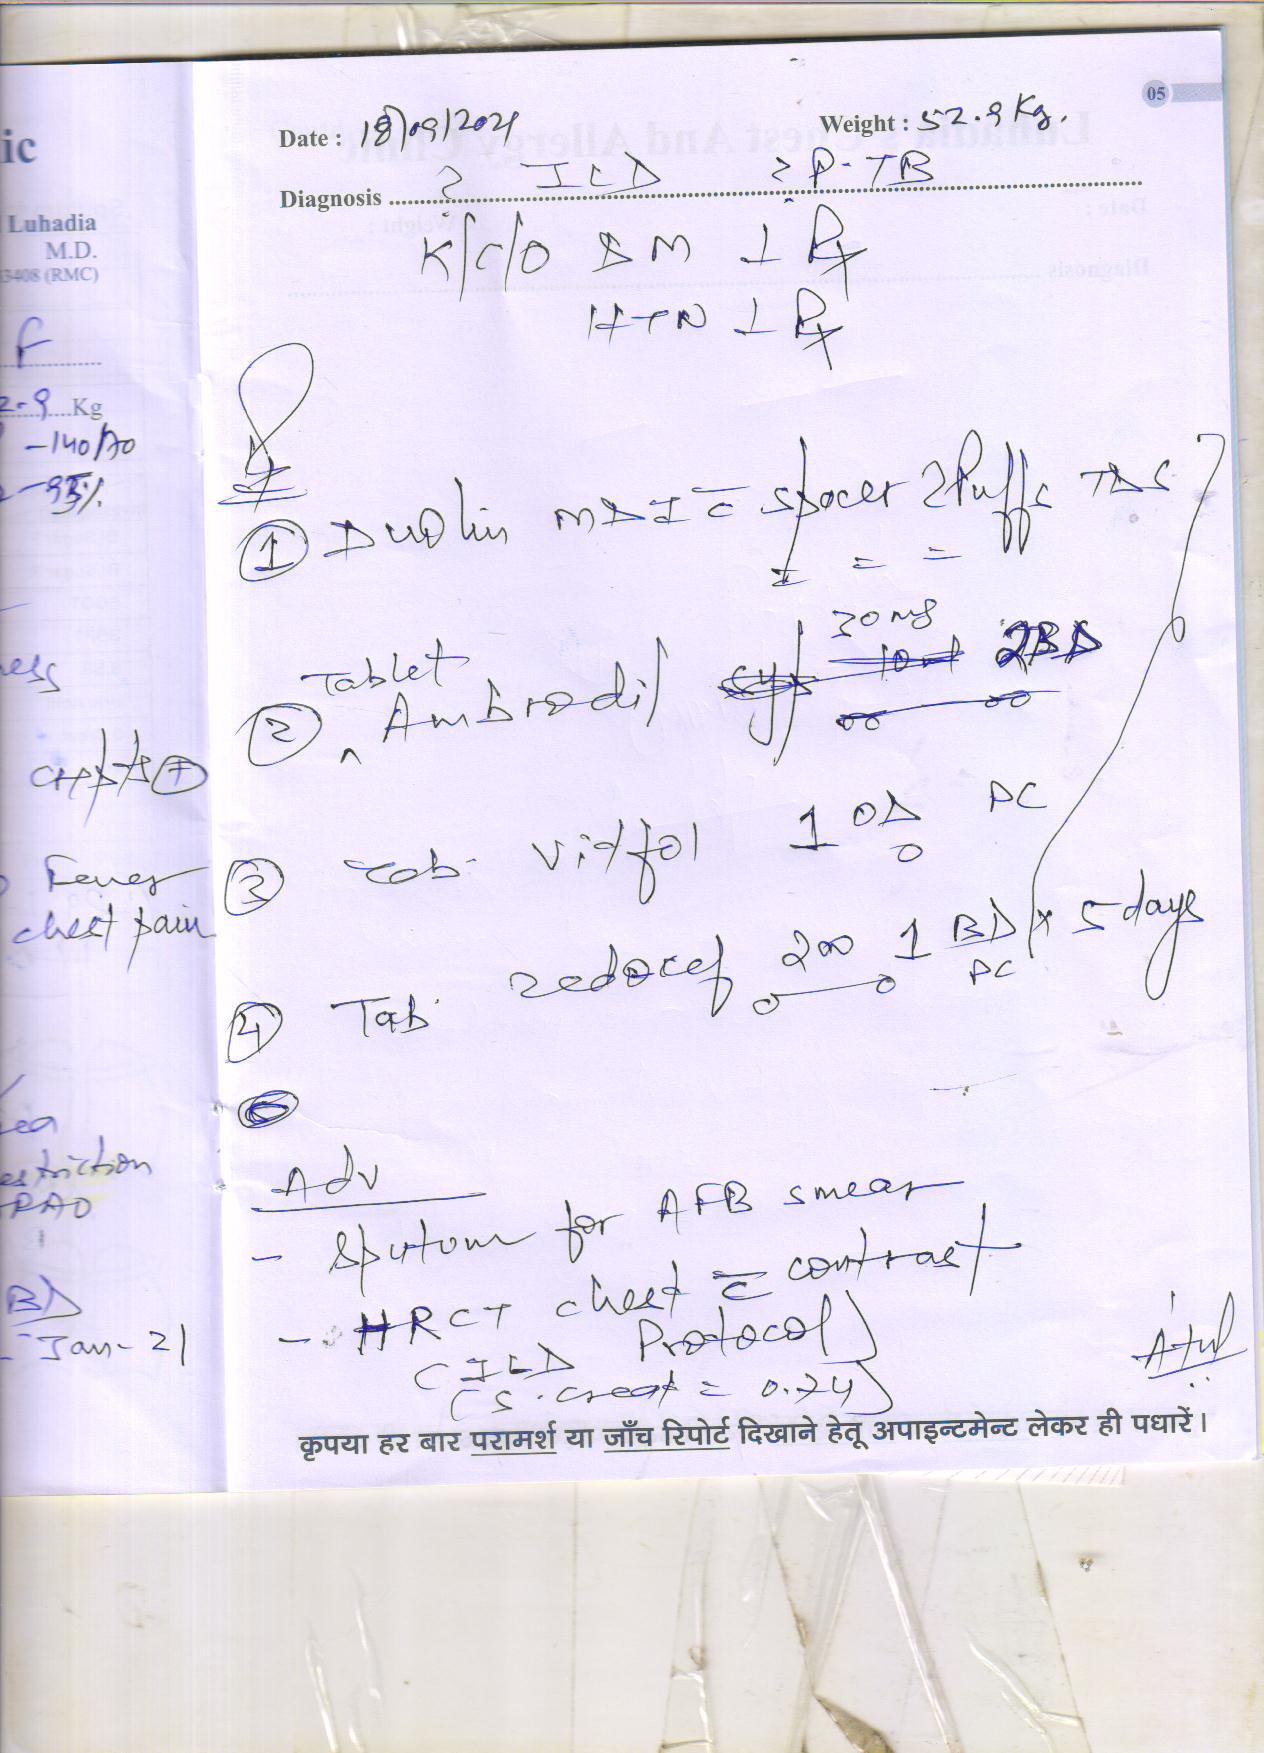 05
Date : 18/09/2021 Weight : 52.9 Kg.
Diagnosis ? ILD ? P-TB
K/C/O DM ⊥ Rx
HTN ⊥ Rx
① Duolin MDI c̅ spacer 2 Puffs TDS
30 mg
Tablet 2BD
② Ambrodil
③ Tab. Vitfol 1 OD PC
④ Tab. redocef 200 1 BD PC x 5 days
Adv
- Sputum for AFB smear
- HRCT chest c̅ contrast
(ILD Protocol)
(S. creat = 0.74)
Atul
कृपया हर बार परामर्श या जाँच रिपोर्ट दिखाने हेतू अपाइन्टमेन्ट लेकर ही पधारें।
ic
Luhadia
M.D.
3408 (RMC)
F
2.9 Kg
-140/70
-93%
ess
crepts +
Fever
chest pain
estriction
BD
Jan-21